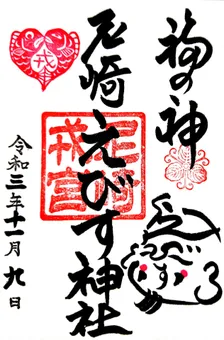 福の神
尼崎えびす神社
尼崎
戎宮
戎
令和三年十一月九日